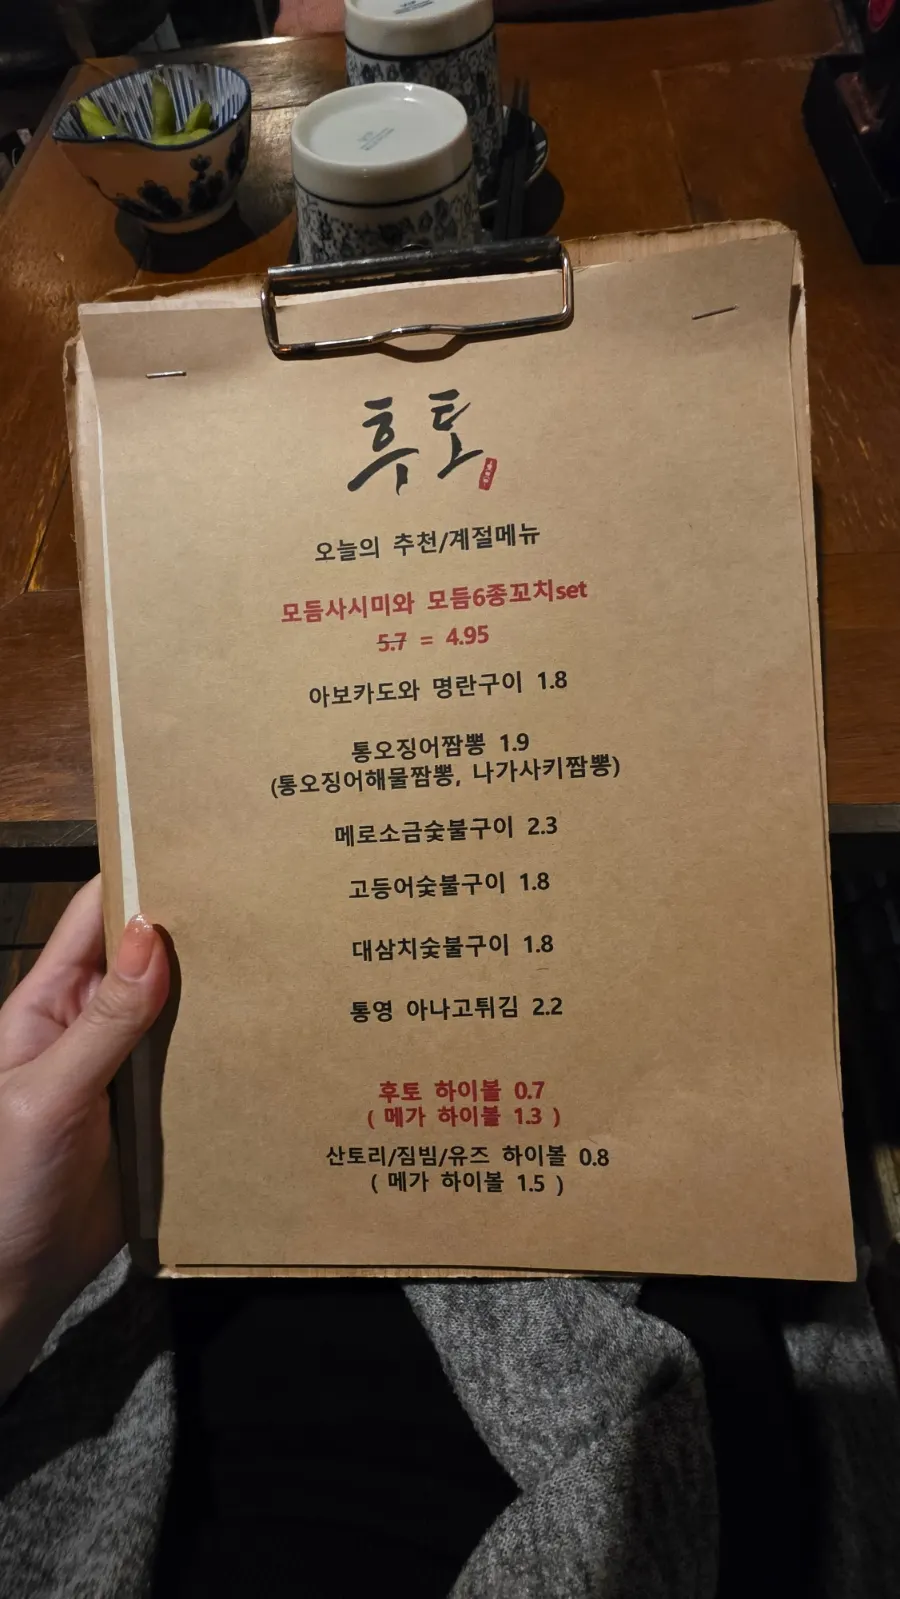 후토
오늘의 추천/계절메뉴
모듬사시미와 모듬6종꼬치set
5.7 = 4.95
아보카도와 명란구이 1.8
통오징어짬뽕 1.9
(통오징어해물짬뽕, 나가사키짬뽕)
메로소금숯불구이 2.3
고등어숯불구이 1.8
대삼치숯불구이 1.8
통영 아나고튀김 2.2
후토 하이볼 0.7
( 메가 하이볼 1.3 )
산토리/짐빔/유즈 하이볼 0.8
( 메가 하이볼 1.5 )